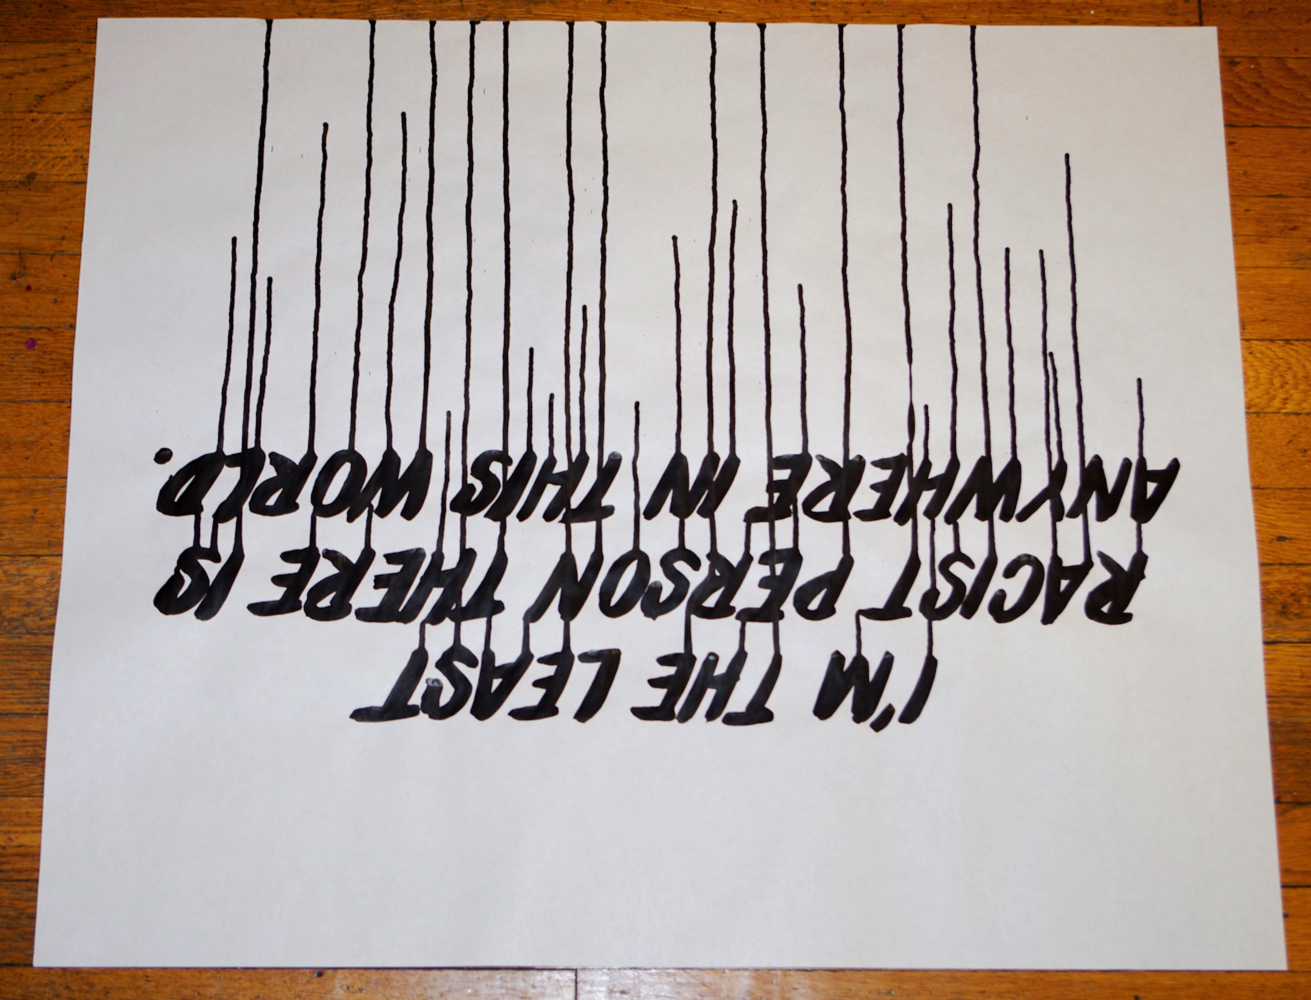 I'M THE LEAST
RACIST PERSON THERE IS
ANYWHERE IN THIS WORLD.